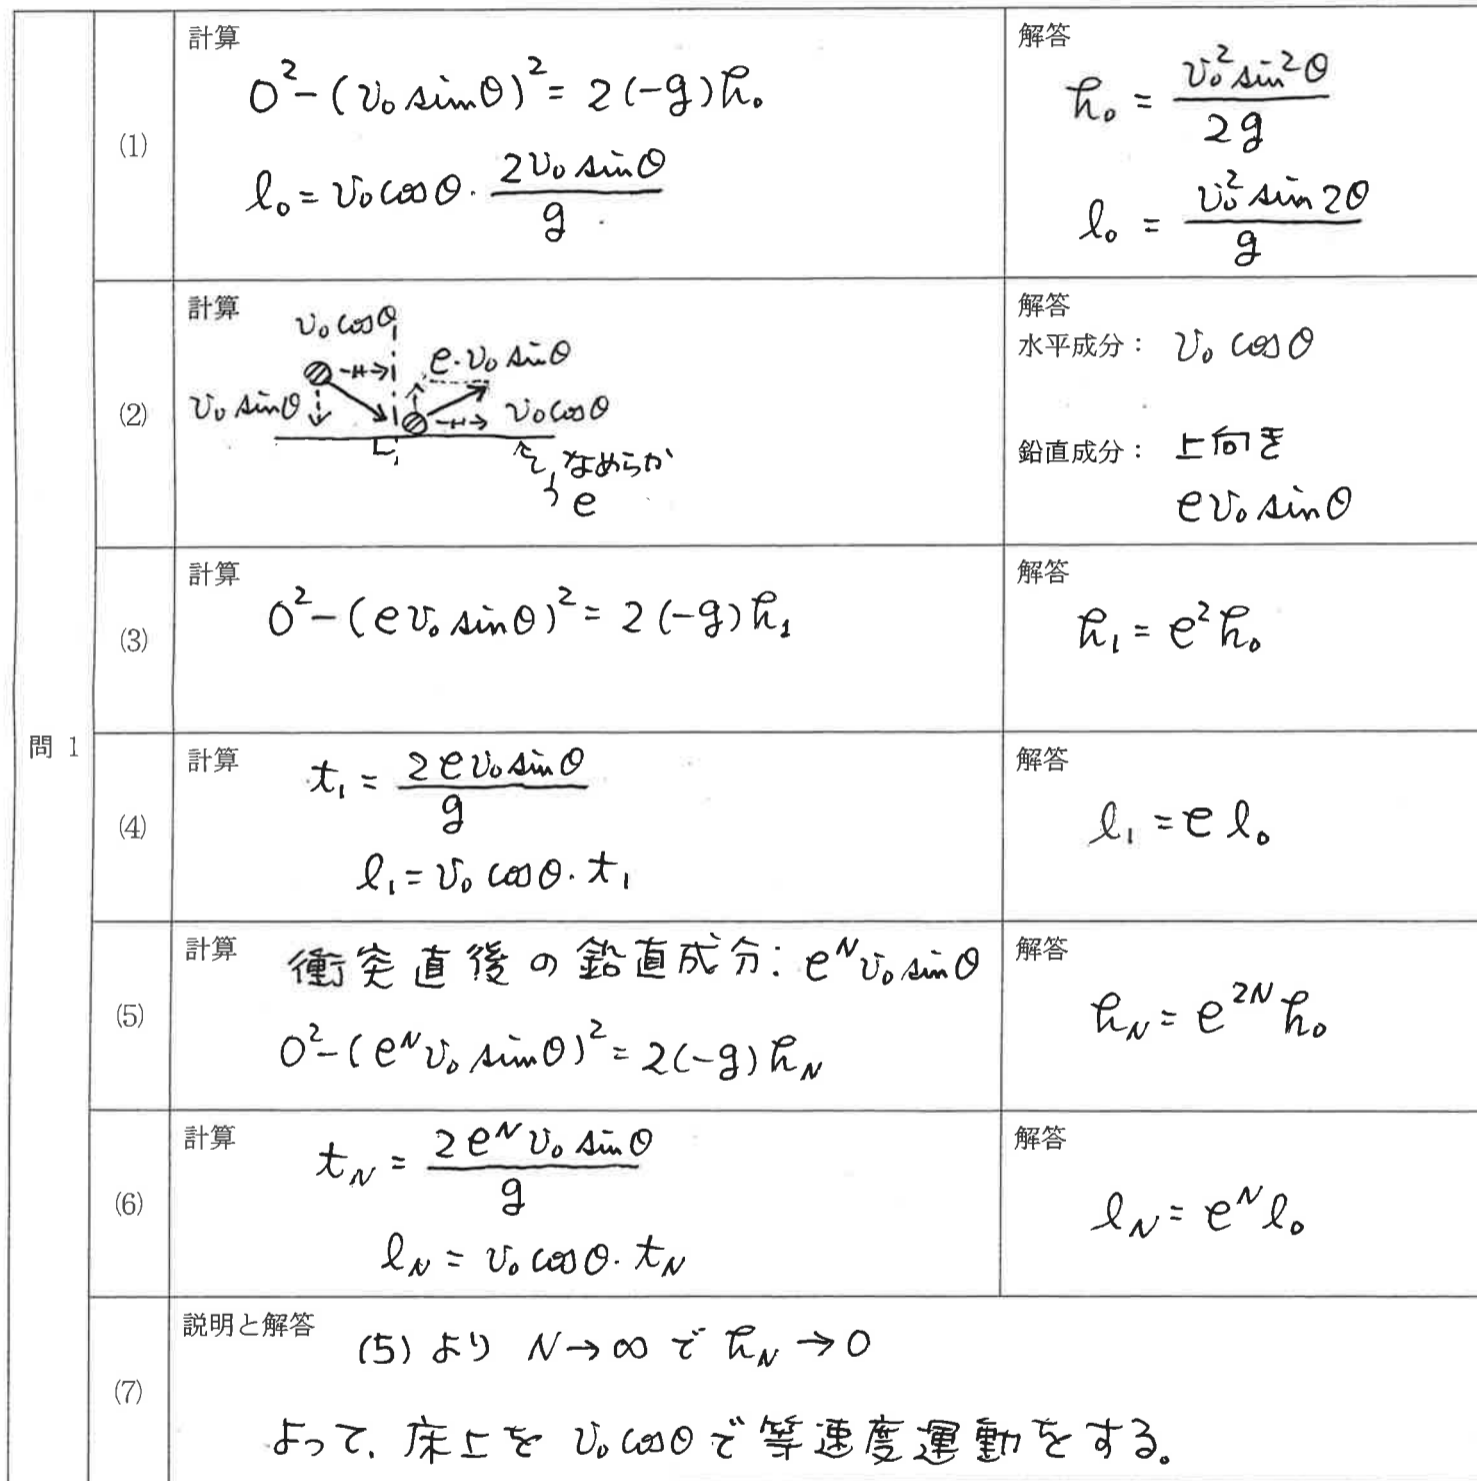 問 1
(1)
計算
0² − (v₀ sinθ)² = 2(−g)h₀
l₀ = v₀ cosθ · 2v₀ sinθ / g
解答
h₀ = v₀² sin²θ / 2g
l₀ = v₀² sin2θ / g
(2)
計算
v₀ cosθ
e·v₀ sinθ
v₀ sinθ
v₀ cosθ
なめらか
e
解答
水平成分： v₀ cosθ
鉛直成分： 上向き
e v₀ sinθ
(3)
計算
0² − (e v₀ sinθ)² = 2(−g)h₁
解答
h₁ = e² h₀
(4)
計算
t₁ = 2e v₀ sinθ / g
l₁ = v₀ cosθ · t₁
解答
l₁ = e l₀
(5)
計算
衝突直後の鉛直成分: eᴺ v₀ sinθ
0² − (eᴺ v₀ sinθ)² = 2(−g)h_N
解答
h_N = e²ᴺ h₀
(6)
計算
t_N = 2eᴺ v₀ sinθ / g
l_N = v₀ cosθ · t_N
解答
l_N = eᴺ l₀
(7)
説明と解答
(5)より N→∞ で h_N → 0
よって、床上を v₀ cosθ で等速度運動をする。